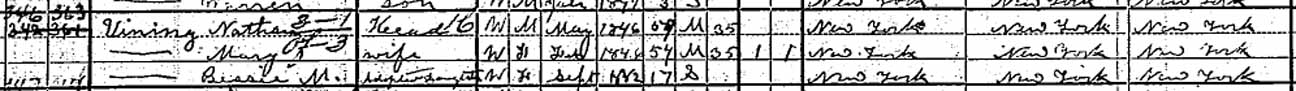 346 363 Warren son W M 1897 3 S New York New York New York
Vining Nathan 3-1 Head 6 W M May 1846 54 M 35 New York New York New York
—— Mary 05-3 wife W F Feb 1846 54 M 35 1 1 New York New York New York
—— Bessie M. W F Sept 1882 17 S New York New York New York